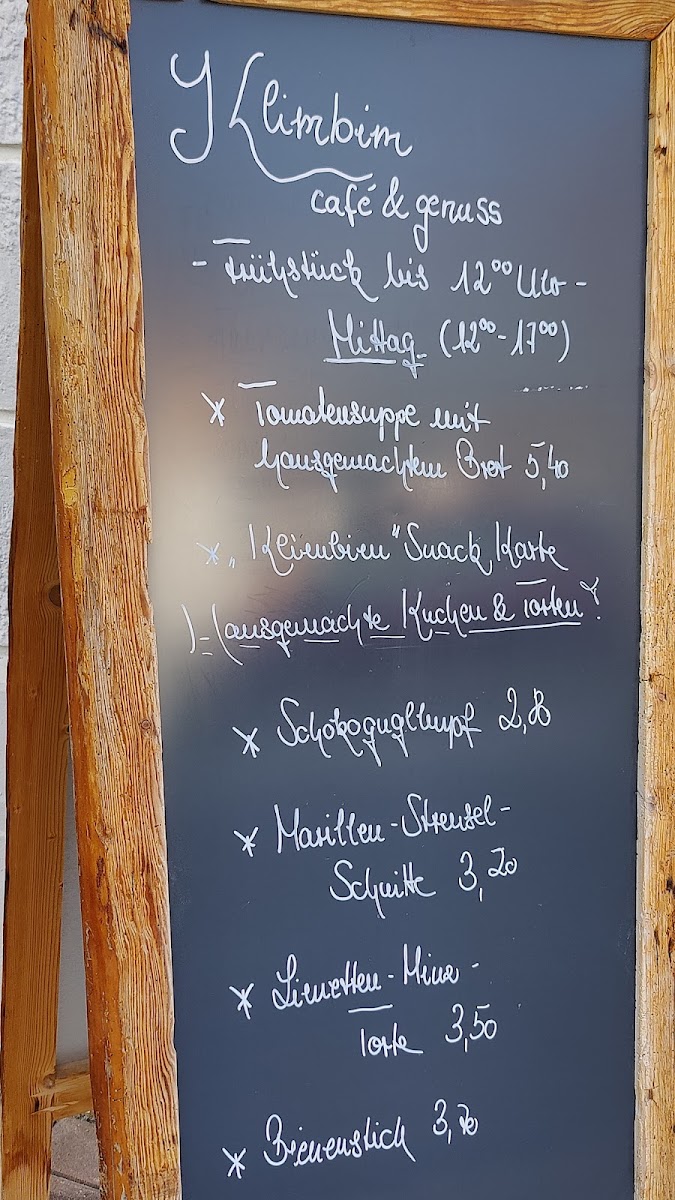 Klimbim
café & genuss
- Frühstück bis 12⁰⁰ Uhr -
Mittag (12⁰⁰-17⁰⁰)
* Tomatensuppe mit
hausgemachtem Brot 5,40
* „Klimbim" Snack Karte
Hausgemachte Kuchen & Torten
* Schokogugelhupf 2,8
* Marillen-Streusel-
Schnitte 3,20
* Limetten-Minz-
Torte 3,50
* Bienenstich 3,20